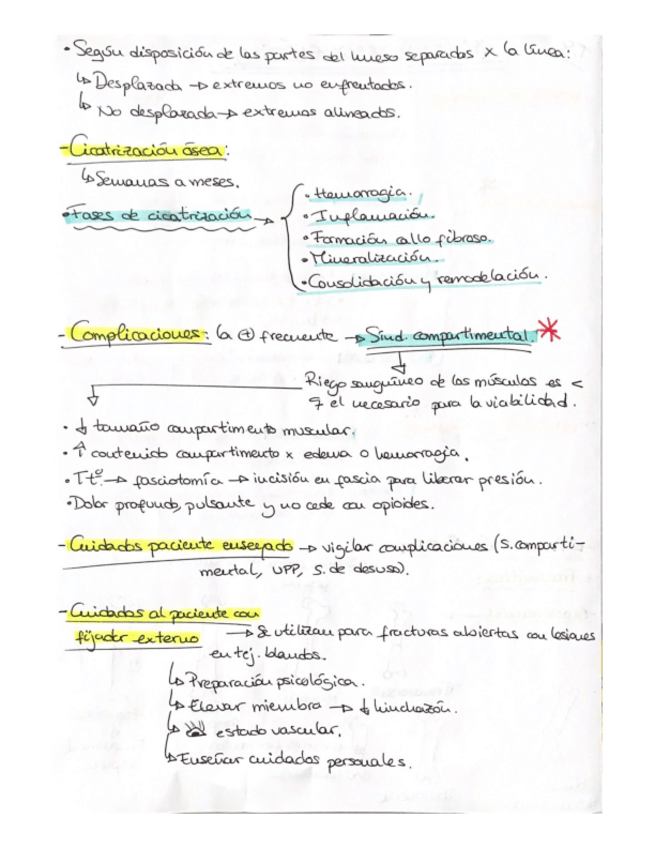 • Según disposición de las partes del hueso separados x la línea:
↳ Desplazada → extremos no enfrentados.
↳ No desplazada → extremos alineados.
- Cicatrización ósea:
↳ Semanas a meses.
• Fases de cicatrización →
• Hemorragia.
• Inflamación.
• Formación callo fibroso.
• Mineralización.
• Consolidación y remodelación.
- Complicaciones: la ⊕ frecuente → Sínd. compartimental. *
Riego sanguíneo de los músculos es <
q el necesario para la viabilidad.
• ↓ tamaño compartimento muscular.
• ↑ contenido compartimento x edema o hemorragia.
• Ttº → fasciotomía → incisión en fascia para liberar presión.
• Dolor profundo, pulsante y no cede con opioides.
- Cuidados paciente enyesado → vigilar complicaciones (S. comparti-
mental, UPP, S. de desuso).
- Cuidados al paciente con
fijador externo → Se utilizan para fracturas abiertas con lesiones
en tej. blandos.
↳ Preparación psicológica.
↳ Elevar miembro → ↓ hinchazón.
↳ estado vascular.
↳ Enseñar cuidados personales.